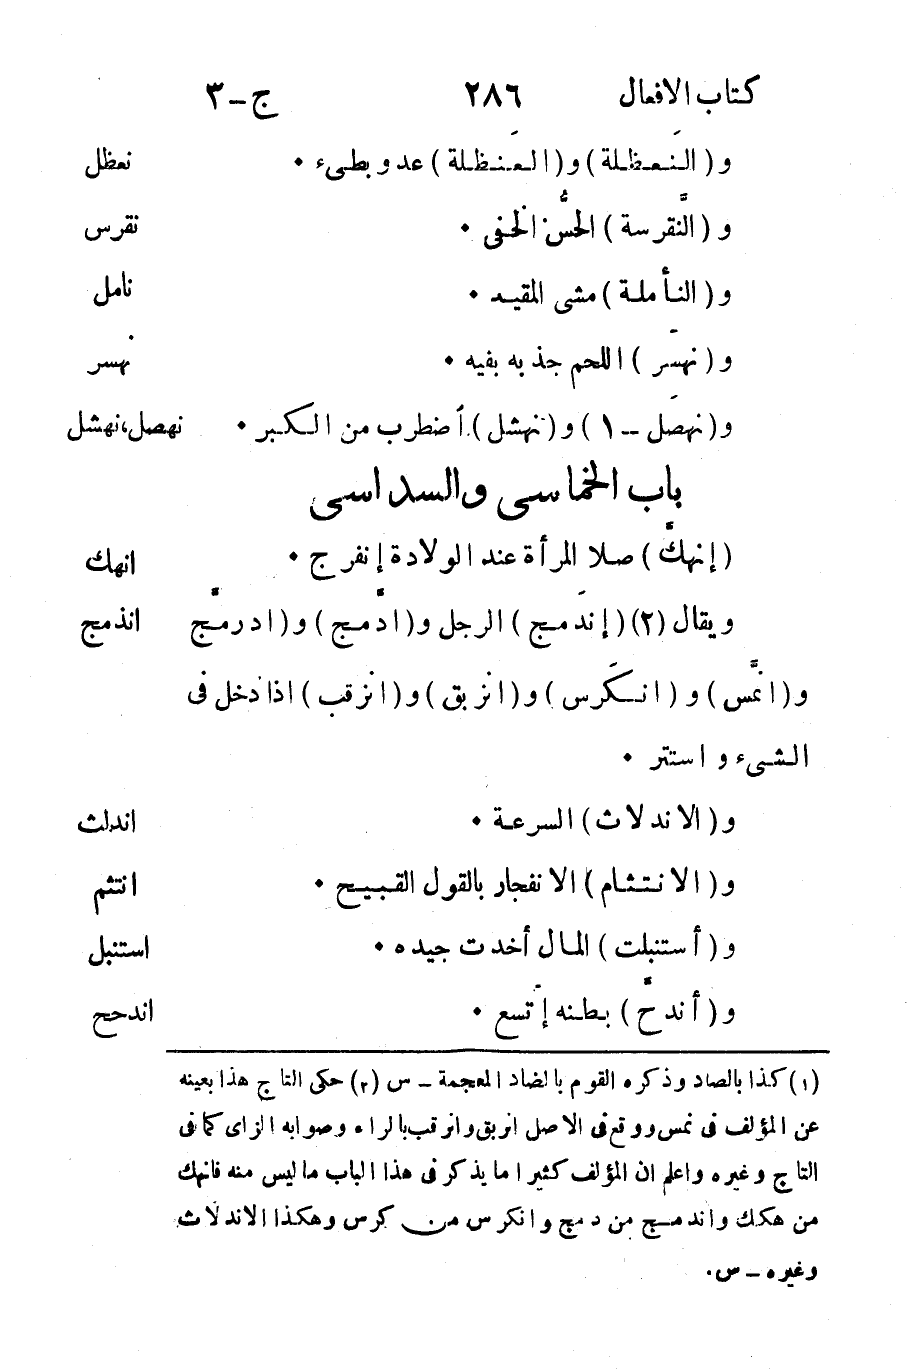 كتاب الافعال ٢٨٦ ج-٣
و (النَعظلة) و (العَنظلة) عدو بطىء • نعظل
و (النَّقرسة) الحسُّ الخفى • نقرس
و (النأملة) مشى المقيد • نامل
و (نهسَر) اللحم جذبه بفيه • نهسر
و (نهصَل - ١) و (نهشل) أضطرب من الكبر • نهصل، نهشل
باب الخماسى والسداسى
(إنهكَّ) صلا المرأة عند الولادة إنفرج • انهك
ويقال (٢) (إندَمج) الرجل و (ادَّمج) و (ادرمَّج انذمج
و (انمَّس) و (انكَرس) و (انزبق) و (انزقب) اذا دخل فى
الشىء واستتر •
و (الاندلاث) السرعة • اندلث
و (الانتثام) الانفجار بالقول القبيح • انتثم
و (أستنبلت) المال أخدت جيده • استنبل
و (أندحَّ) بطنه إتَسع • اندحح
(١) كذا بالصاد وذكره القوم بالضاد المعجمة - س (٢) حكى التاج هذا بعينه
عن المؤلف فى نمس ووقع فى الاصل انربق وانرقب بالراء وصوابه الزاى كما فى
التاج وغيره واعلم ان المؤلف كثيرا ما يذكر فى هذا الباب ما ليس منه فانهك
من هكك واندمج من دمج وانكرس من كرس وهكذا الاندلاث
وغيره - س.